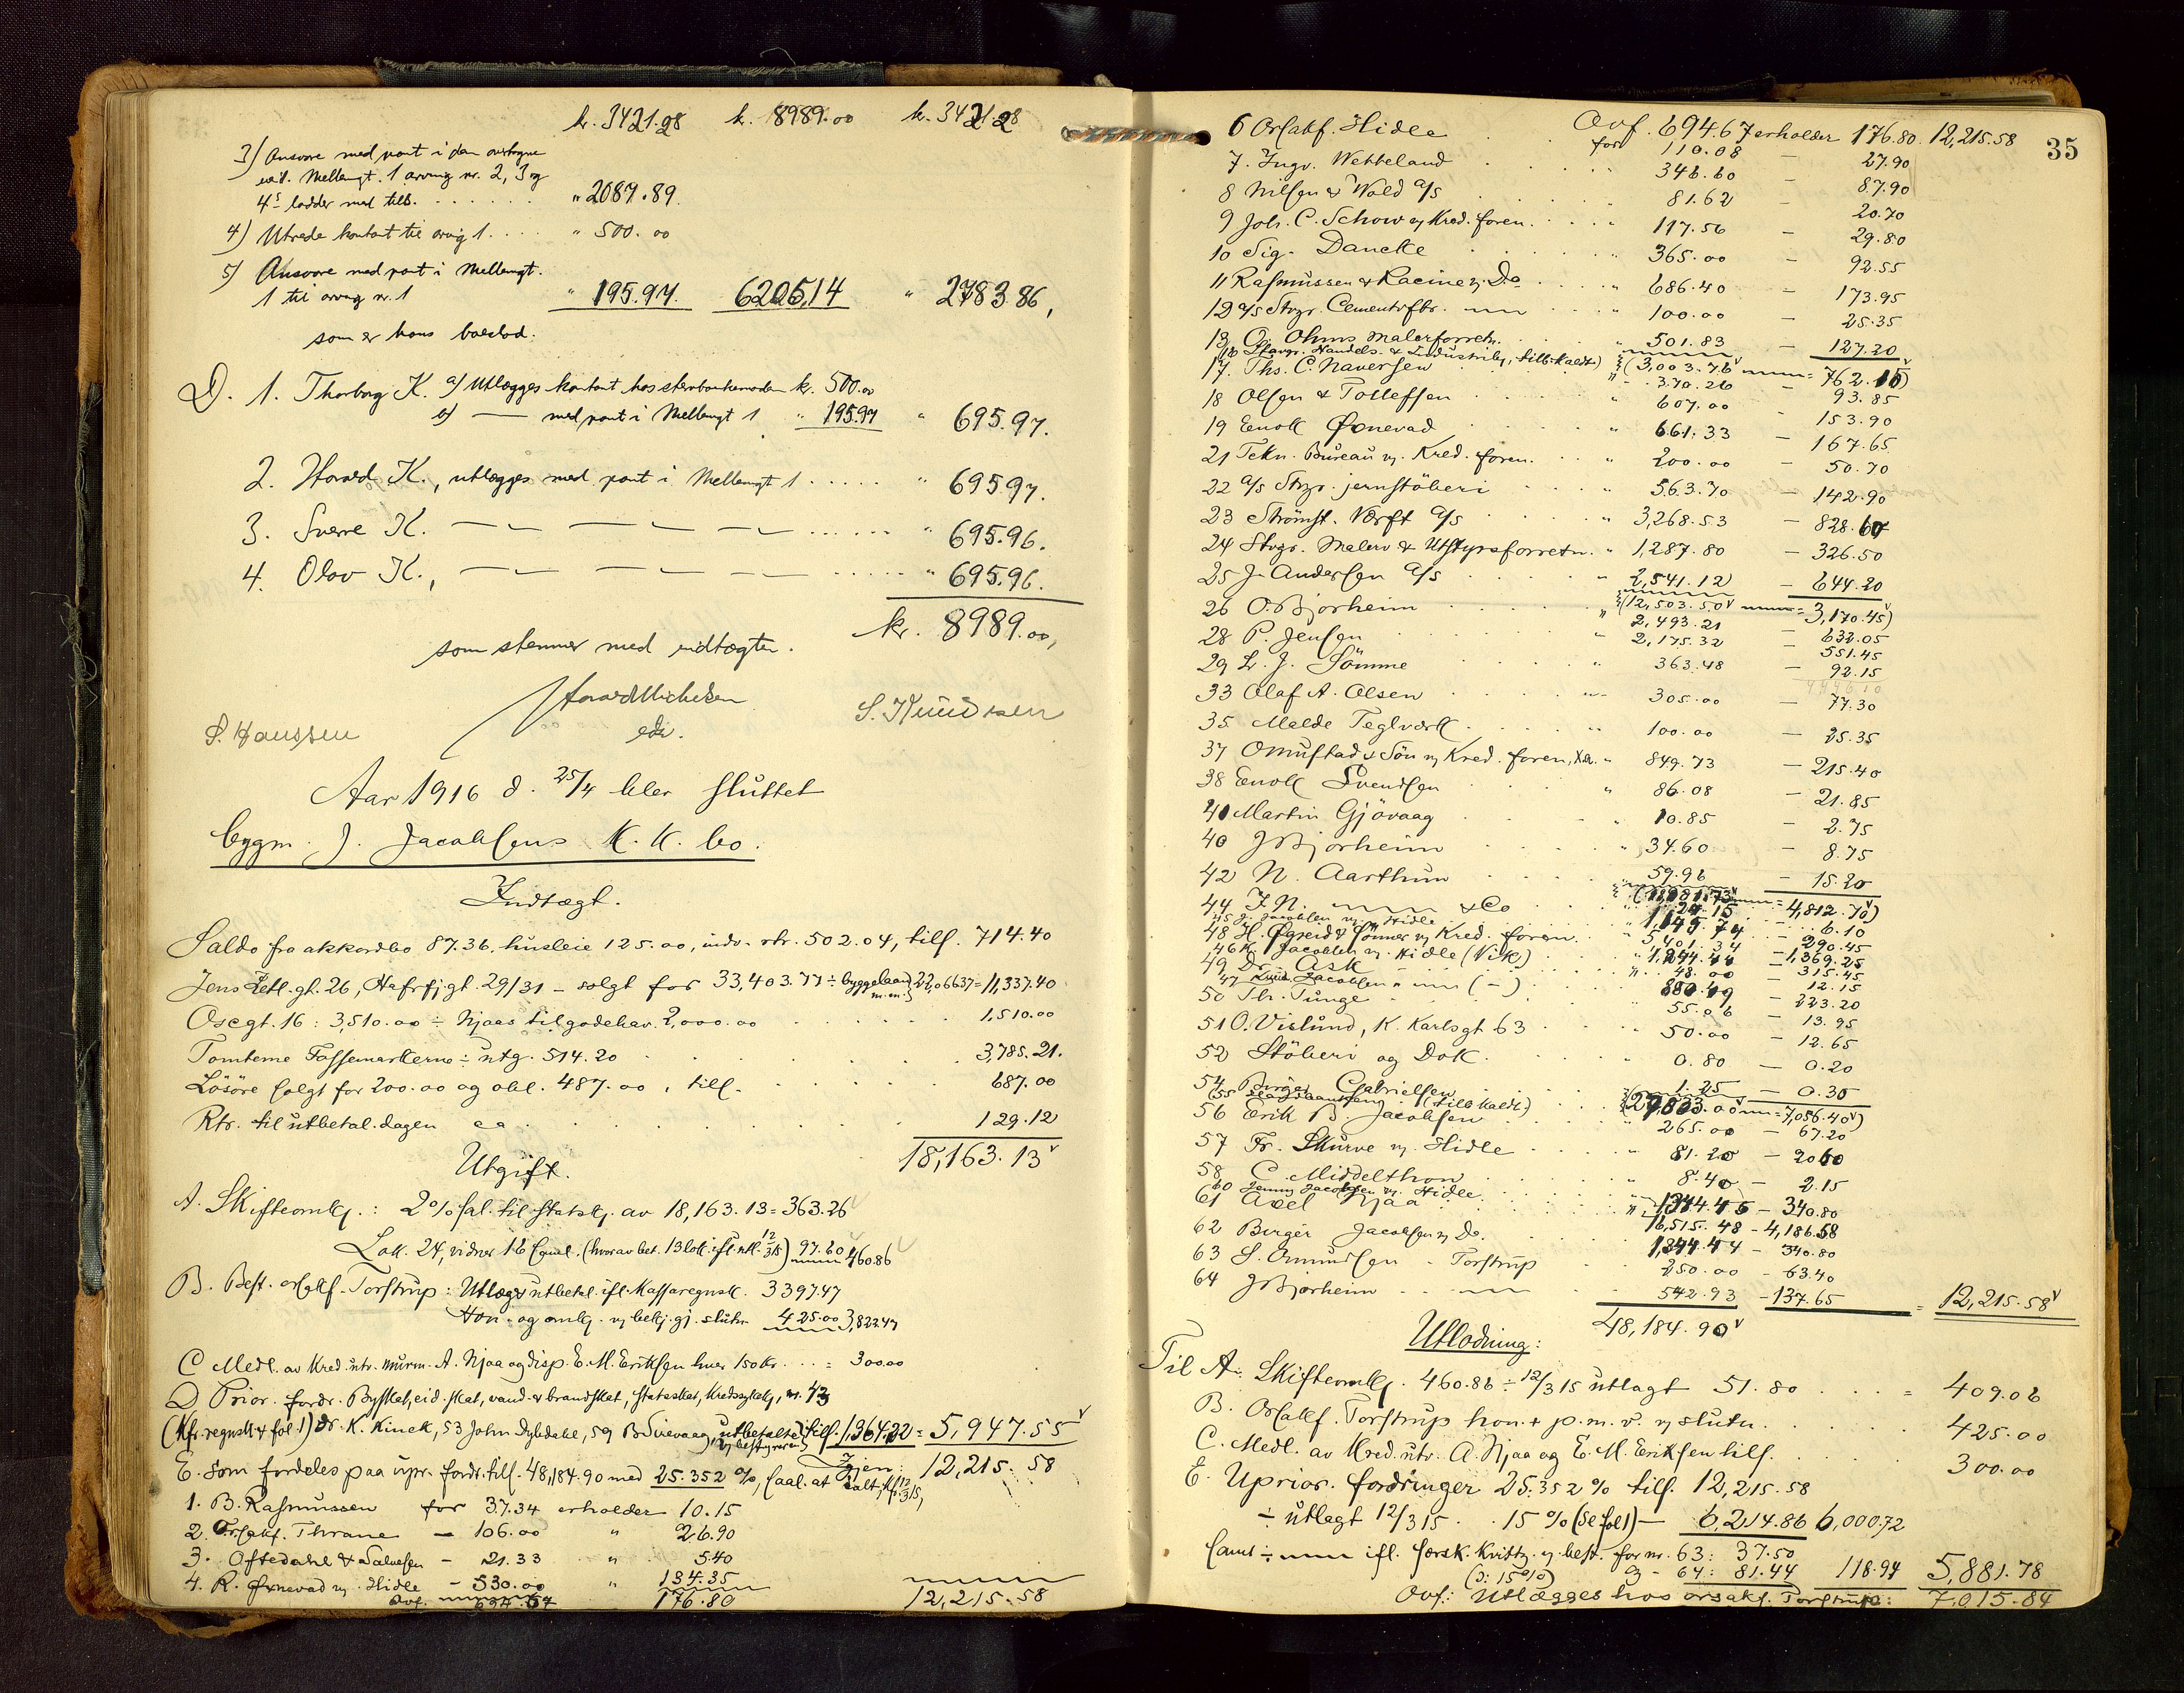 kr. 3421.28 kr. 8989.00 kr. 3421.28
3) Ansvare med pant i den overtagne
eied. Mellemgt. 1 arving nr. 2, 3 og
4s lodder med tils. . . . . . . " 2087.89.
4) Utrede kontant til arving 1. . . . " 500.00
5) Ansvare med pant i Mellemgt.
1 til arving nr. 1 " 195.97. 6205,14 " 2783.86,
som er hans boeslod.
D. 1. Thorborg K. a) Utlægges kontant hos stervboenkemoden kr. 500.00
b) — med pant i Mellemgt 1 " 195.97 " 695.97.
2. Harald K., utlægges med pant i Mellemgt 1 . . . . . " 695.97.
3. Sverre K. — — — — — . . . . . . " 695.96.
4. Olav K., — — — — — . . . . . . " 695.96.
kr. 8989.00,
som stemmer med indtægten.
S. Haussen edv. S. Knudsen
Aar 1916 d. 25/4 blev sluttet
bygm. J. Jacobsens K. K. bo.
Indtægt.
Saldo fra akkordbo 87.36, husleie 125.00, indv. rtr. 502.04, tils. 714.40
Jens Zetl. gt. 26, Hafrfj. gt. 29/31 – solgt for 33,403.77 ÷ byggelaan m.m. 22,066.37 = 11,337.40
Osc. gt. 16 : 3,510.00 ÷ Njaas tilgodehav. 2,000.00 1,510.00
Tomterne Tassemarkerne ÷ utg. 514.20 3,785.21.
Lösöre solgt for 200.00 og obl. 487.00, tils. 687.00
Rtr. til utbetal. dagen ca. 129.12
18,163.13
Utgift.
A. Skifteomk. : 2% sal. til statsk. av 18,163.13 = 363.26
Lok. 24, vidner 16 (hvorav bet. 13 lok. ifl. utl. 12/3 15) 97.60 460.86
B. Best. o/sakf. Torstrup : Utlæg utbetal. ifl. Massaregnsk. 3397.47
Hon. og omk. v/ bekj. gj. slutn. 425.00 3,822.47
C Medl. av Kred. utv. murm. A. Njaa og disp. E. M. Eriksen hver 150 kr. . . = 300.00
D Prior. fordr. Byskat, eid. skat, vand- & brandskat, statsskat, Kredssykek., nr. 43
(Kfr. regnsk. & fol 1) Dr. K. Kinck, 53 John Dybdahl, 59 B. Sirevaag, utbetalte v/ bestyreren tils. 1364.22 = 5,947.55
Igjen: 12,215.58
E. som fordeles paa upr. fordr. tils. 48,184.90 med 25.352 %, saal. at ialt, ifl. 12/3 15,
1. B. Rasmussen for 37.34 erholder 10.15
2. O/sakf. Thrane – 106.00 " 26.90
3. Oftedahl & Salvesen – 21.33 " 5.40
4. R. Ørnevad v/ Hidle – 530.00 " 134.35
Ovf. 694.67 176.80 12,215.58
35
Ovf. 694.67 erholder 176.80 12,215.58
6 O/sakf. Hidle for 110.08 – 27.90
7. Ingv. Webbeland 346.60 – 87.90
8 Nilsen & Wold A/S 81.62 – 20.70
9 Joh. C. Schow v/ Kred. foren. 117.56 – 29.80
10 Sig. Dancke 365.00 – 92.55
11 Rasmussen & Racine v/ Do 686.40 – 173.95
12 A/S Stvgr. Cementvfbr. 100.00 – 25.35
13 O. Ohms Malerforretn. 501.83 – 127.20
16 Stavgr. Handels- & Industribk. tilb. kaldt) (3,003.76 = 762.15)
17. Ths. C. Naversen 370.26 – 93.85
18 Olsen & Tollefsen 607.00 – 153.90
19 Enok Ørnevad 661.33 – 167.65
21 Tekn. Bureau v/ Kred. foren. 200.00 – 50.70
22 A/S Stvgr. jernstöberi 563.70 – 142.90
23 Strömst. Værft A/S 3,268.53 – 828.60
24 Stvgr. Maler & Utstyrsforretn. 1,287.80 – 326.50
25 J. Andersen A/S 2,541.12 – 644.20
(12,503.50 = 3,170.45)
26 O. Bjorheim 2,493.21 – 632.05
28 P. Jensen 2,175.32 – 551.45
29 L. J. Sömme 363.48 – 92.15
33 Olaf A. Olsen 305.00 – 77.30
35 Malde Teglverk 100.00 – 25.35
37 O. Mustad & Sön v/ Kred. foren, Kra. 849.73 – 215.40
38 Enok Svendsen 86.08 – 21.85
41 Martin Gjövaag 10.85 – 2.75
40 J. Bjorheim 34.60 – 8.75
42 N. Aarthun 59.96 – 15.20
= 4,812.70)
44 J. N. & Co 24.15 – 6.10
45 J. Jacobsen v/ Hidle 1,145.74 – 290.45
48 H. Øgreid & Sönner v/ Kred. foren. 5,401.34 – 1,369.25
46 K. Jacobsen v/ Hidle (Vik) 1,244.44 – 315.45
49 Dr. Ask 48.00 – 12.15
47 Jacobsen " ( – ) 880.49 – 223.20
50 Th. Tunge 55.06 – 13.95
51 O. Vislund, K. Karlsgt 63 50.00 – 12.65
52 Stöberi og Dok. 0.80 – 0.20
54 Birger Gabrielsen 1.25 – 0.30
(tilb. kaldt) (27,833.00 = 7,056.40)
56 Erik B. Jacobsen 265.00 – 67.20
57 Fr. Skurve v/ Hidle 81.20 – 20.60
58 C. Middelthon 8.40 – 2.15
60 Jenny Jacobsen v/ Hidle 1344.45 – 340.80
61 Axel Njaa 16,515.48 – 4,186.58
62 Birger Jacobsen v/ Do. 1,344.44 – 340.80
63 S. Omundsen – Torstrup 250.00 – 63.40
64 J. Bjorheim 542.93 – 137.65 = 12,215.58
48,184.90
Utlodning:
Til A. Skifteomk. 460.86 ÷ 12/3 15 utlagt 51.80 . . . = 409.06
B. O/sakf. Torstrup hon. + p.m.v. v/ slutn. 425.00
C. Medl. av Kred. utv. A. Njaa og E. M. Eriksen tils. 300.00
E. Uprior. fordringer 25.352 % tils. 12,215.58
÷ utlagt 12/3 15 . . 15 % (se fol 1) – 6,214.86 6,000.72
samt ÷ ifl. særsk. kvittg. v/ best. for nr. 63 : 37.50
(ɔ: 15%) og – 64 : 81.44 118.94 5,881.78
Ovf.: Utlægges hos o/sakf. Torstrup: 7,015.84